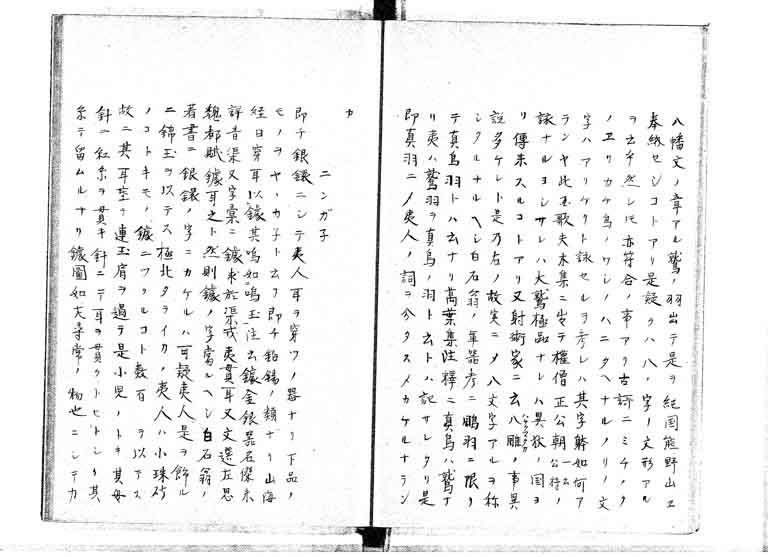 八幡文ノ章アル鷲ノ羽出テ是ヲ紀国熊野山エ
奉納セシコトアリ是疑クハ八ノ字ノ文形アル
ヲ云乎然レ𪜈亦符合ノ事アリ古謌ニミチノク
ノエソカケ鳥ノワシノハニタヘナルノリノ文
字ハアリケリト詠セルヲ考レハ其字躰如何ア
ランヤ此玉歌夫木集ニ出テ権僧正公朝一云公特ノ
詠ナルヨシサレハ大鷲極品ナレハ異狄ノ国ヨ
リ傳来スルコトアリ又射術家ニ云八雕ノ事異
説多ケレト是乃左ノ故実ニメ八文字アルヲ称
シクルナルヘシ白石翁ノ軍器考ニ鵰羽ニ限リ
テ真鳥羽トハ云ナリ萬葉集注釋ニ真鳥ハ鷲ナ
リ夷ハ鷲羽ヲ真鳥ノ羽ト云トハ記サレタリ是
即真羽ニメ夷人ノ詞ヲ今タスメカケルナラン
カ
ニンガ子
即チ銀鐶ニシテ夷人耳ヲ穿ツノ器ナリ下品ノ
モノヲヤヽカ子ト云フ即チ鉛錫ノ類ナリ山海
経曰穿耳以鐻其鳴如鳴玉注云鐻金銀器名傑未
詳音渠又字彙ニ鐻求於渠戎夷貫耳又文選左思
魏都賦鐻耳之ト然則鐻ノ字當ルヘシ白石翁ノ
著書ニ銀鐶ノ字ニカケルハ可疑夷人是ヲ飾ル
ニ錦玉ヲ以テス極北タライカノ夷人ハ小珠砂
ノコトキモノ鐻ニツラルコト数百ヲ以アス
故ニ其耳空ヲ連玉肩ヲ過テ是小児ノトキ其母
針ニ紅糸ヲ貫キ針ニテ耳ヲ貫クトヒトシク其
糸テ留ムルナリ鐻圖如大尋常ノ物也ニシテカ